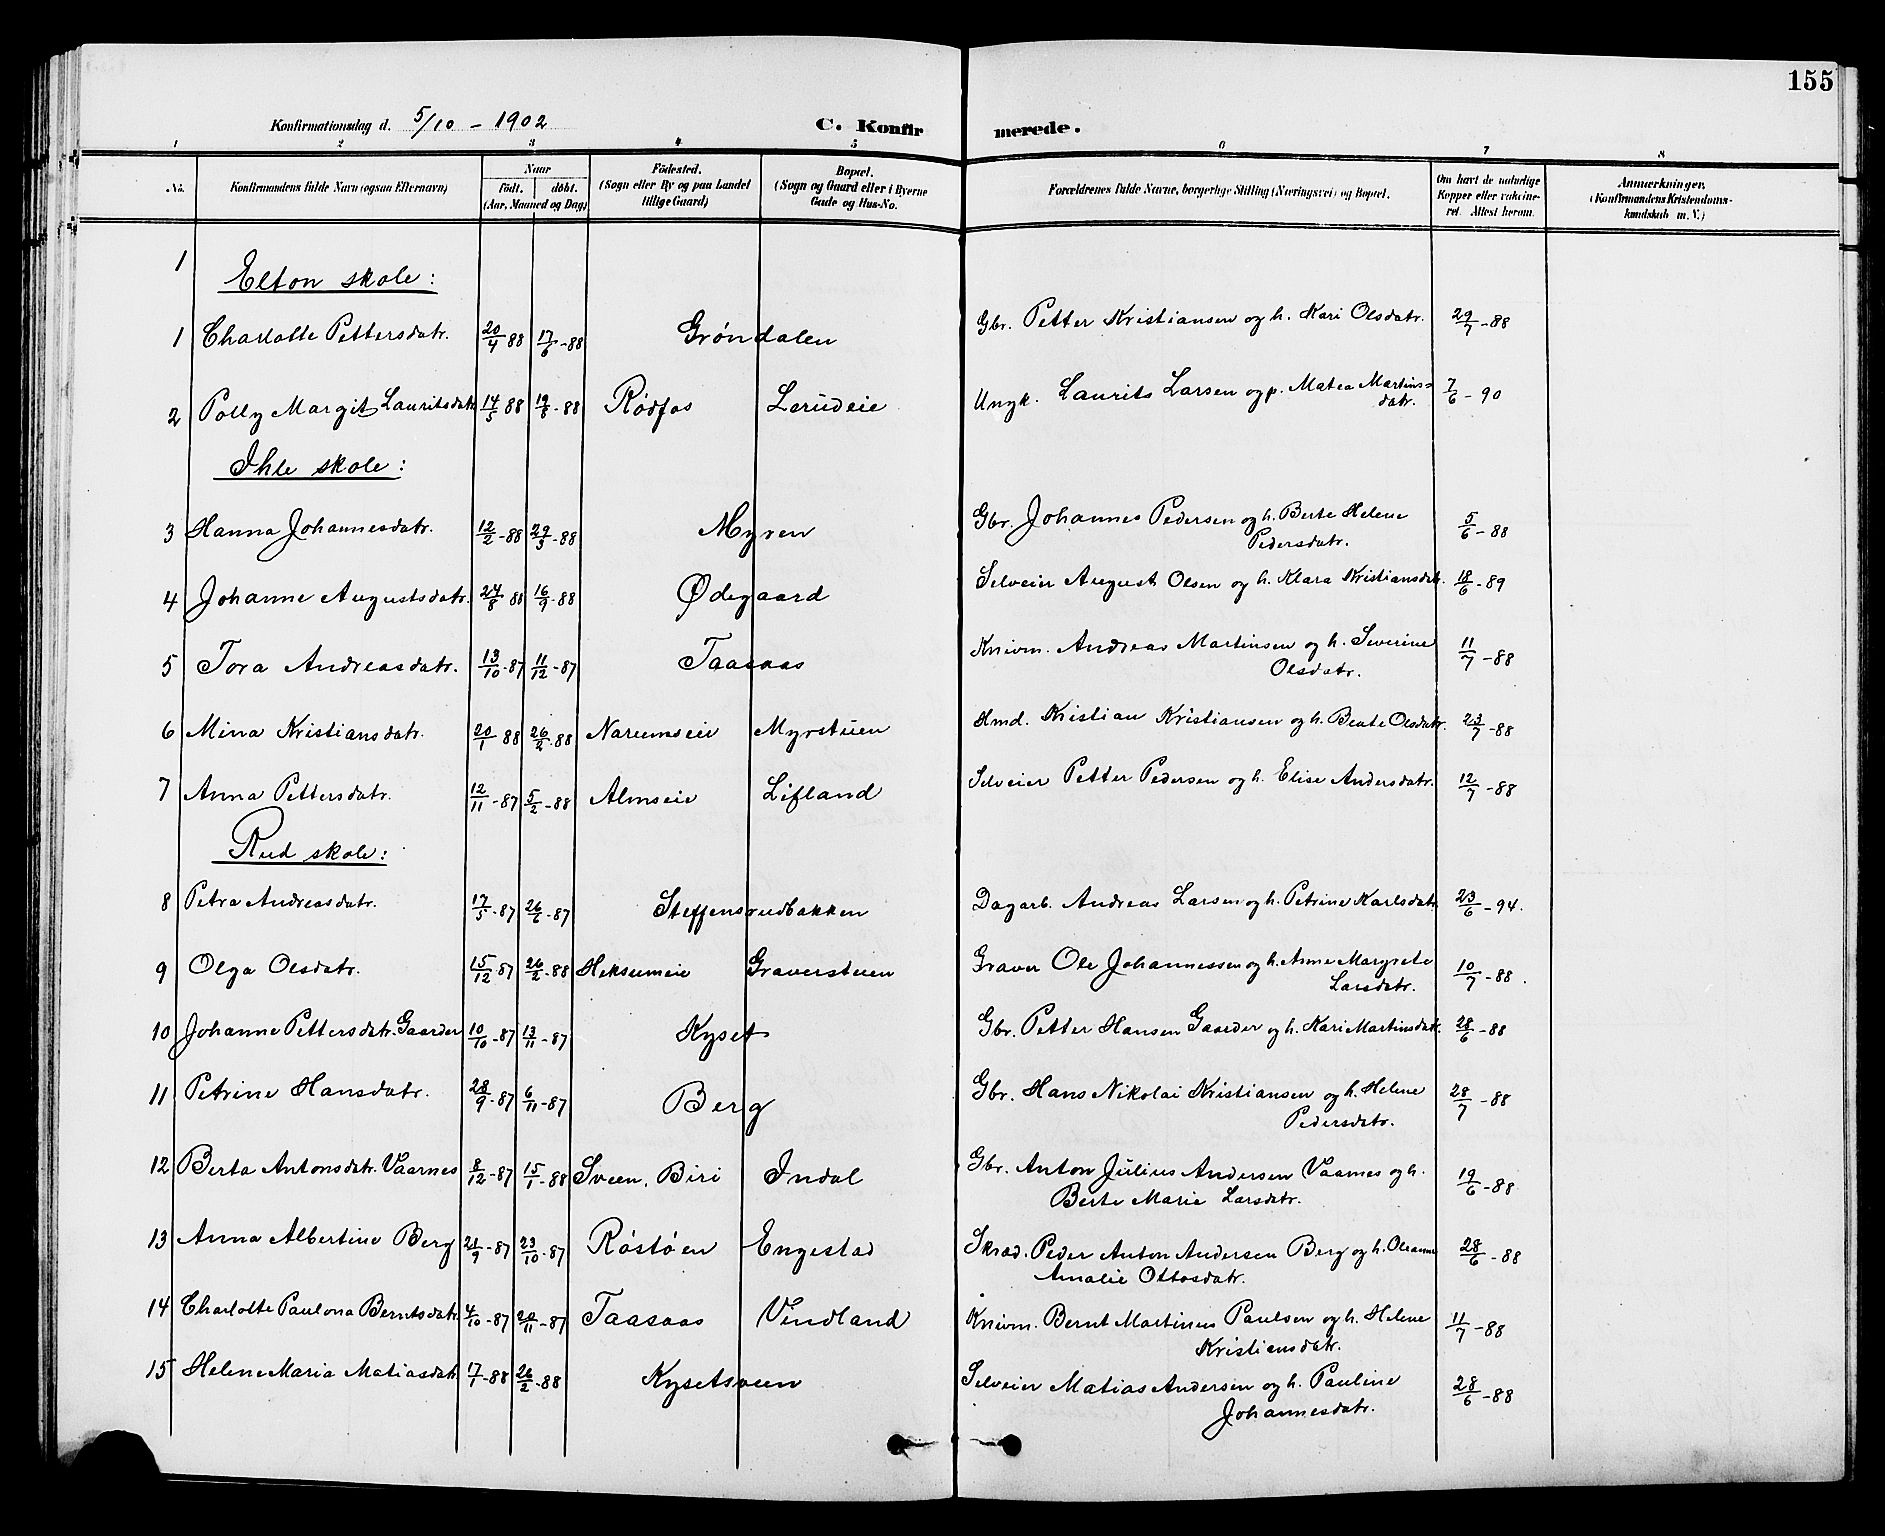 155
Konfirmationsdag d. 5/10 - 1902
C. Konfirmerede.
1 2 3 4 5 6 7 8
No. Konfirmandens fulde Navn (ogsaa Efternavn) Naar født. døbt. (Aar, Maaned og Dag) Fødested. (Sogn eller By og paa Landet tillige Gaard) Bopæl. (Sogn og Gaard eller i Byerne Gade og Hus-No. Forældrenes fulde Navne, borgerlige Stilling (Næringsvei) og Bopæl. Om havt de naturlige Kopper eller vakcineret. Attest herom. Anmærkninger. (Konfirmandens Kristendomskundskab m. V.)
1
Elton skole:
1 Charlotte Pettersdatr. 20/4 88 17/6 -88 Grøndalen Gbr. Petter Kristiansen og h. Kari Olsdatr. 29/7 -88
2 Polly Margit Lauritsdatr 14/5 88 19/8 -88 Rødfos Lerudeie Ungk. Laurits Larsen og p. Matea Martins=
datr. 7/6 - 90
Ihle skole:
3 Hanna Johannesdatr. 12/2 -88 29/3 -88 Myren Gbr. Johannes Pedersen og h. Berte Helene
Pedersdatr. 5/6 -88
4 Johanne Augustsdatr. 24/8 88 16/9 -88 Ødegaard Selveier August Olsen og h. Klara Kristiansdatr. 18/6 -89
5 Tora Andreasdatr. 13/10 -87 11/12 -87 Taasaas Knivm. Andreas Martinsen og h. Severine
Olsdatr. 11/7 -88
6 Mina Kristiansdatr. 20/1 88 26/2 -88 Narumseie Myrstuen Hmd. Kristian Kristiansen og h. Beate Olsdatr. 23/7 -88
7 Anna Pettersdatr. 12/11 -87 5/2 -88 Almseie Lifland Selveier Petter Pedersen og h. Elise Andersdatr. 12/7 -88
Rud skole:
8 Petra Andreasdatr. 17/5 -87 26/6 -87 Steffensrudbakken Dagarb. Andreas Larsen og h. Petrine Karlsdatr. 23/6 -94.
9 Olga Olsdatr. 15/12 -87 26/2 -88 Heksumeie Graverstuen Graver Ole Johannessen og h. Anne Margrete
Larsdatr. 10/7 -88.
10 Johanne Pettersdatr. Gaarder 10/10 -87 13/11 -87 Kyset Gbr. Petter Hansen Gaarder og h. Kari Martinsdatr. 28/6 -88
11 Petrine Hansdatr. 28/9 -87 6/11 -87 Berg Gbr. Hans Nikolai Kristiansen og h. Helene
Pedersdatr. 28/7 -88
12 Berta Antonsdatr. Vaarnes 8/12 -87 15/1 -88 Sveen, Biri Indal Gbr. Anton Julius Andersen Vaarnes og h.
Berte Marie Larsdatr. 19/6 -88
13 Anna Albertine Berg 21/9 -87 23/10 -87 Røstøen Engestad Skræd. Peder Anton Andersen Berg og h. Oleanne
Amalie Ottosdatr. 28/6 -88
14 Charlotte Paulona Berntsdatr. 4/10 -87 20/11 -87 Taasaas Vindland Knivm. Bernt Martinus Paulsen og h. Helene
Kristiansdatr. 11/7 -88
15 Helene Maria Matiasdatr. 17/1 -88 26/2 -88 Kysetsveen Selveier Matias Andersen og h. Pauline
Johannesdatr. 28/6 -88